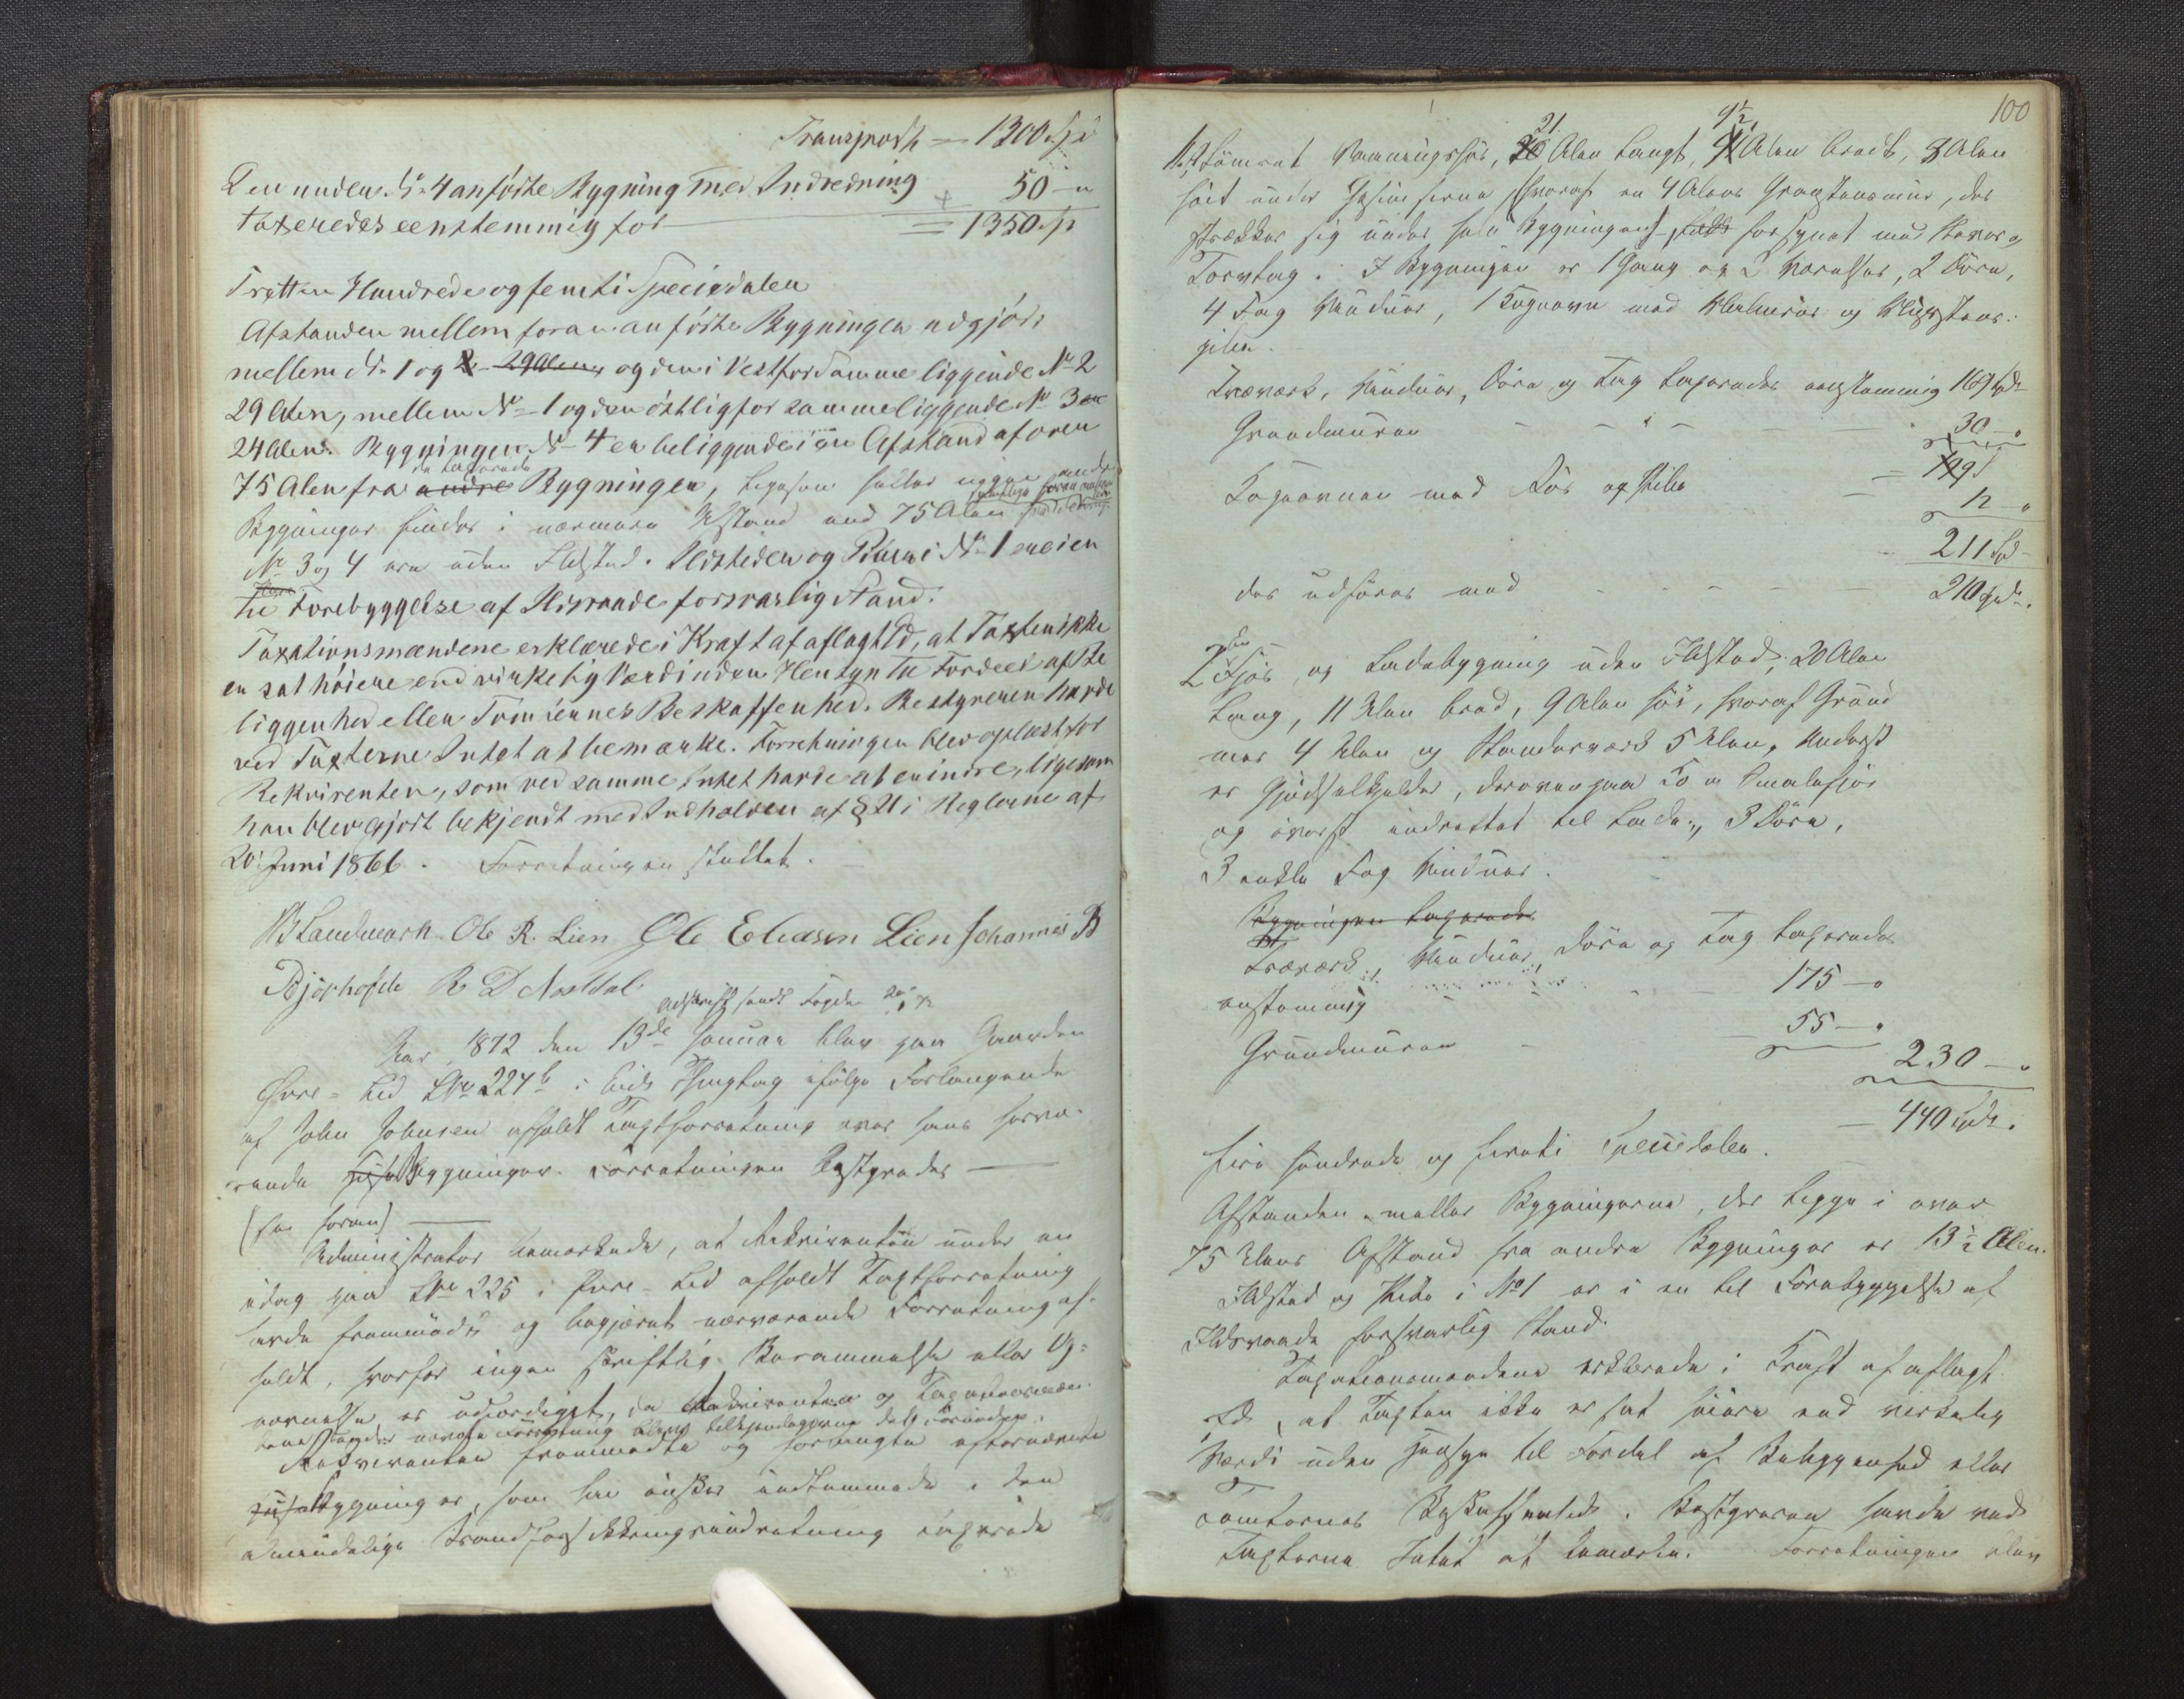 Transport = 1300 Spd
Den under No 4 anførte Bygning med Indredning 50 "
taxeredes eenstemmig for = 1350 Sp
Tretten Hundrede og femti Speciedaler
Afstanden mellem foran anførte Bygninger udgjør:
mellem No 1 og 2 29 Alen og den i Vest for samme liggende No 2
29 Alen, mellem No 1 og den østlig for samme liggende No 3
24 Alen. Bygningen No 4 er beliggende i en Afstand af over
75 Alen fra andre Bygninger, ligesom heller ingen andre
de taxerede
Bygninger findes i nærmere Afstand end 75 Alen
No 3 og 4 ere uden Ildsted. Ildsteder og Piber i No 1 ere i en
til Forebyggelse af Ildsvaade forsvarlig Stand.
Taxationsmændene erklærede i Kraft af aflagt Ed, at Taxten ikke
er sat høiere end virkelig Værdi uden Hensyn til Fordeel af Be
liggenhed eller Tomternes Beskaffenhed. Bestyreren havde
ved Taxterne Intet at bemærke. Forretningen blev oplæst for
Rekvirenten, som ved samme Intet havde at erindre, ligesom
han blev gjort bekjendt med Indholden af § 21 i Reglerne af
20 Juni 1866. Forretningen sluttet.
B Landmark. Ole R. Lien Ole Eliasen Lien Johannes B
Bjørhofde R D Nostdal
Udskrift sendt Fogden
Aar 1872 den 13de Januar blev paa Gaarden
Øvre-Eid Lno 224b i Eids Thinglag ifølge Forlangende
af John Johnsen afholdt Taxtforretning over hans hervæ-
rende Bygninger. Forretningen bestyredes
(see foran)
Administrator bemærkede, at Rekvirenten under en
idag paa Lno 225 i Øvre-Eid afholdt Taxtforretning
havde fremmødt og begjæret nærværende Forretning af-
holdt, hvorfor ingen skriftlig Berammelse eller Op-
nævnelse er udfærdiget, da Rekvirenten og Taxationsmæn
Rekvirenten fremmødte og forlangte efternævnte
Bygninger, som han ønsker indlemmede i den
almindelige Brandforsikkringsindretning taxerede
100
1, Tømret Vaaningshus, 21 Alen langt, 9½ Alen bredt, 8 Alen
høit under Gesimserne (hvoraf en 4 Alens Graastensmuur, der
strækker sig under hele Bygningen) forsynet med Næver og
Torvtag. I Bygningen er 1 Gang og 2 Værelser, 2 Døre,
4 Fag Vinduer, 1 Kogeovn med og
pibe.
Træværk, Vinduer, Døre og Tag taxeredes eenstemmig 169 Spd
Grundmuren 30 "
199
Kogeovnen med Rør og Pibe 12 "
211 Spd
der udføres med 210 Spd.
2 Fjøs og Ladebygning uden Ildsted, 20 Alen
lang, 11 Alen bred, 9 Alen høi, hvoraf Grund
mur 4 Alen og Standerværk 5 Alen. Underst
er Gjødselkjelder, derovenpaa Ko og Smalefjøs
og øverst indrettet til Lade, 3 Døre,
3 enkle Fag Vinduer.
Bygningen taxeredes
Træværk, Vinduer, Døre og Tag taxeredes
enstemmig 175 "
Grundmuren 55 "
230 "
440 Spd.
fire hundrede og fireti Speciedaler.
Afstanden mellem Bygningerne, der ligge i over
75 Alens Afstand fra andre Bygninger er 13½ Alen.
Ildsted og Pibe i No 1 er i en til Forebyggelse af
Ildsvaade forsvarlig Stand.
Taxationsmændene erklærede i Kraft af aflagt
Ed, at Taxten ikke er sat høiere end virkelig
Værdi uden Hensyn til Fordel af Beliggenhed eller
Tomternes Beskaffenhed. Bestyreren havde ved
Taxterne Intet at bemærke. Forretningen blev